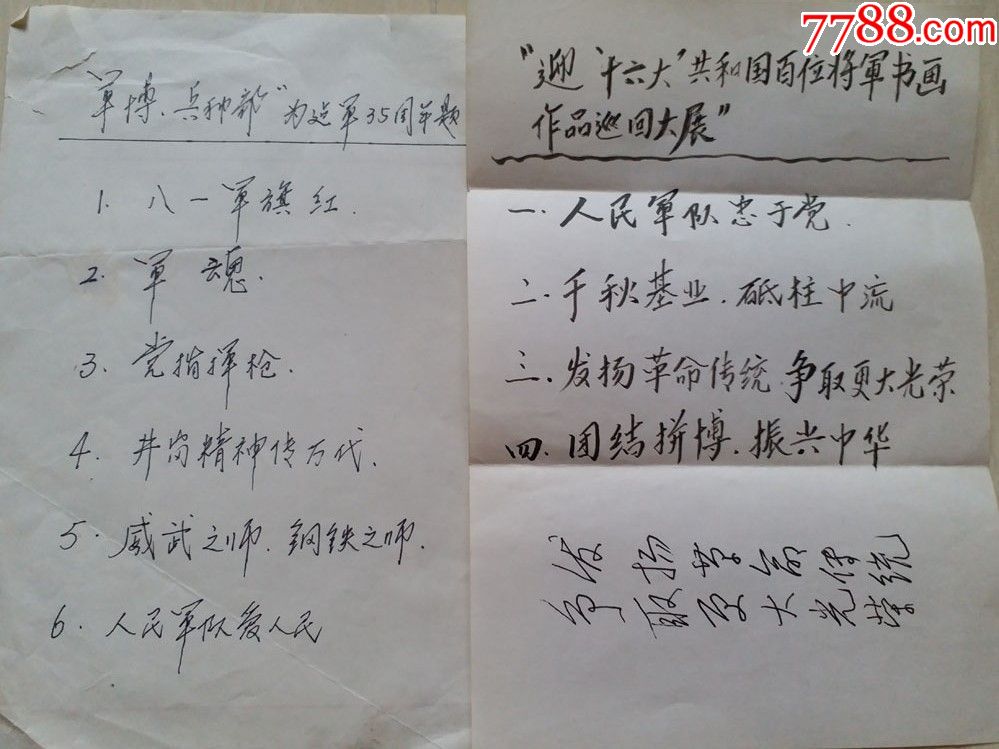 7788.com
"軍博、兵种部"为建军35周年题
1. 八一軍旗红.
2. 軍魂.
3. 党指挥枪.
4. 井岗精神传万代.
5. 威武之师、钢铁之师.
6. 人民軍队爱人民
"迎'十六大'共和国百位将軍书画
作品巡回大展"
一. 人民軍队忠于党.
二. 千秋基业、砥柱中流
三. 发扬革命传统 争取更大光荣
四. 团结拼博、振兴中华
发扬革命传统
争取更大光荣